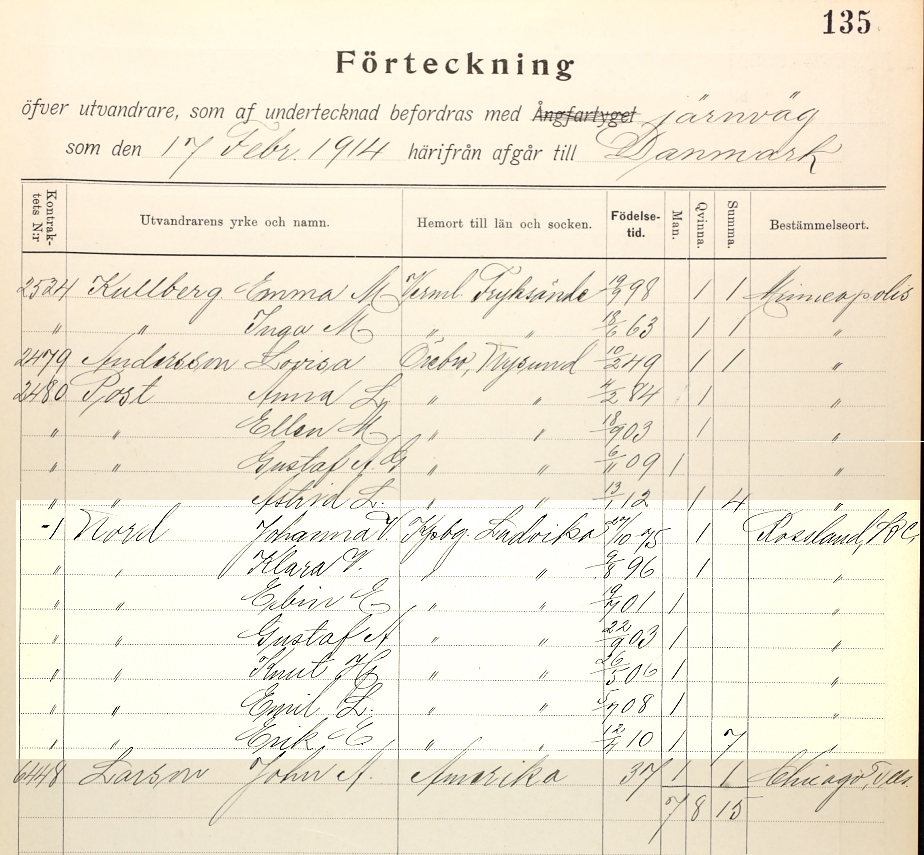 135
Förteckning
öfver utvandrare, som af undertecknad befordras med Ångfartyget järnväg
som den 17 Febr. 1914 härifrån afgår till Danmark
Kontraktets N:r Utvandrarens yrke och namn. Hemort till län och socken. Födelsetid. Man. Qvinna. Summa. Bestämmelseort.
2524 Kullberg Emma M Verml. Fryksände 19/9 98 1 1 Minneapolis
" " Inga M " " 18/6 63 1 1 "
2479 Andersson Lovisa Örebro, Nysund 10/2 49 1 1 "
2480 Post Anna L " " 11/2 84 1 "
" " Ellen M " " 18/9 03 1 "
" " Gustaf A G " " 6/11 09 1 "
" " Astrid L. " " 13/1 12 1 4 "
-1 Nord Johanna V. Kpbg. Ludvika 27/10 75 1 Rossland, B.C.
" " Klara V. " " 9/8 96 1 "
" " Ebbin E " " 19/7 01 1 "
" " Gustaf A " " 22/9 03 1 "
" " Knut H " " 26/5 06 1 "
" " Emil L. " " 5/7 08 1 "
" " Erik E " " 12/4 10 1 7 "
6448 Larson John A. Amerika 37 1 1 Chicago, Ills.
7 8 15